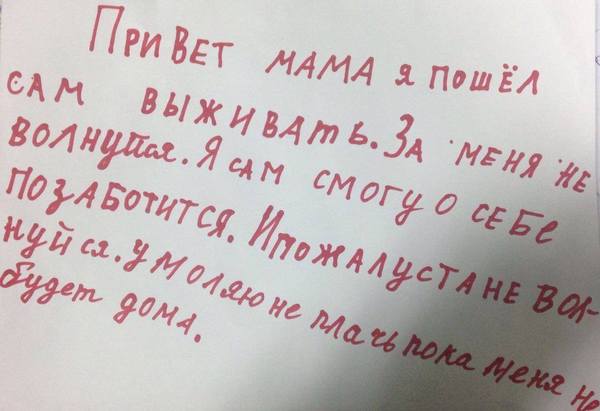 ПРИВЕТ МАМА Я ПОШЁЛ
САМ ВЫЖИВАТЬ. ЗА МЕНЯ НЕ
ВОЛНУЙСЯ. Я САМ СМОГУ О СЕБЕ
ПОЗАБОТИТСЯ. И ПОЖАЛУСТА НЕ ВОЛ-
НУЙСЯ. УМОЛЯЮ НЕ ПЛАЧЬ ПОКА МЕНЯ НЕ
БУДЕТ ДОМА.